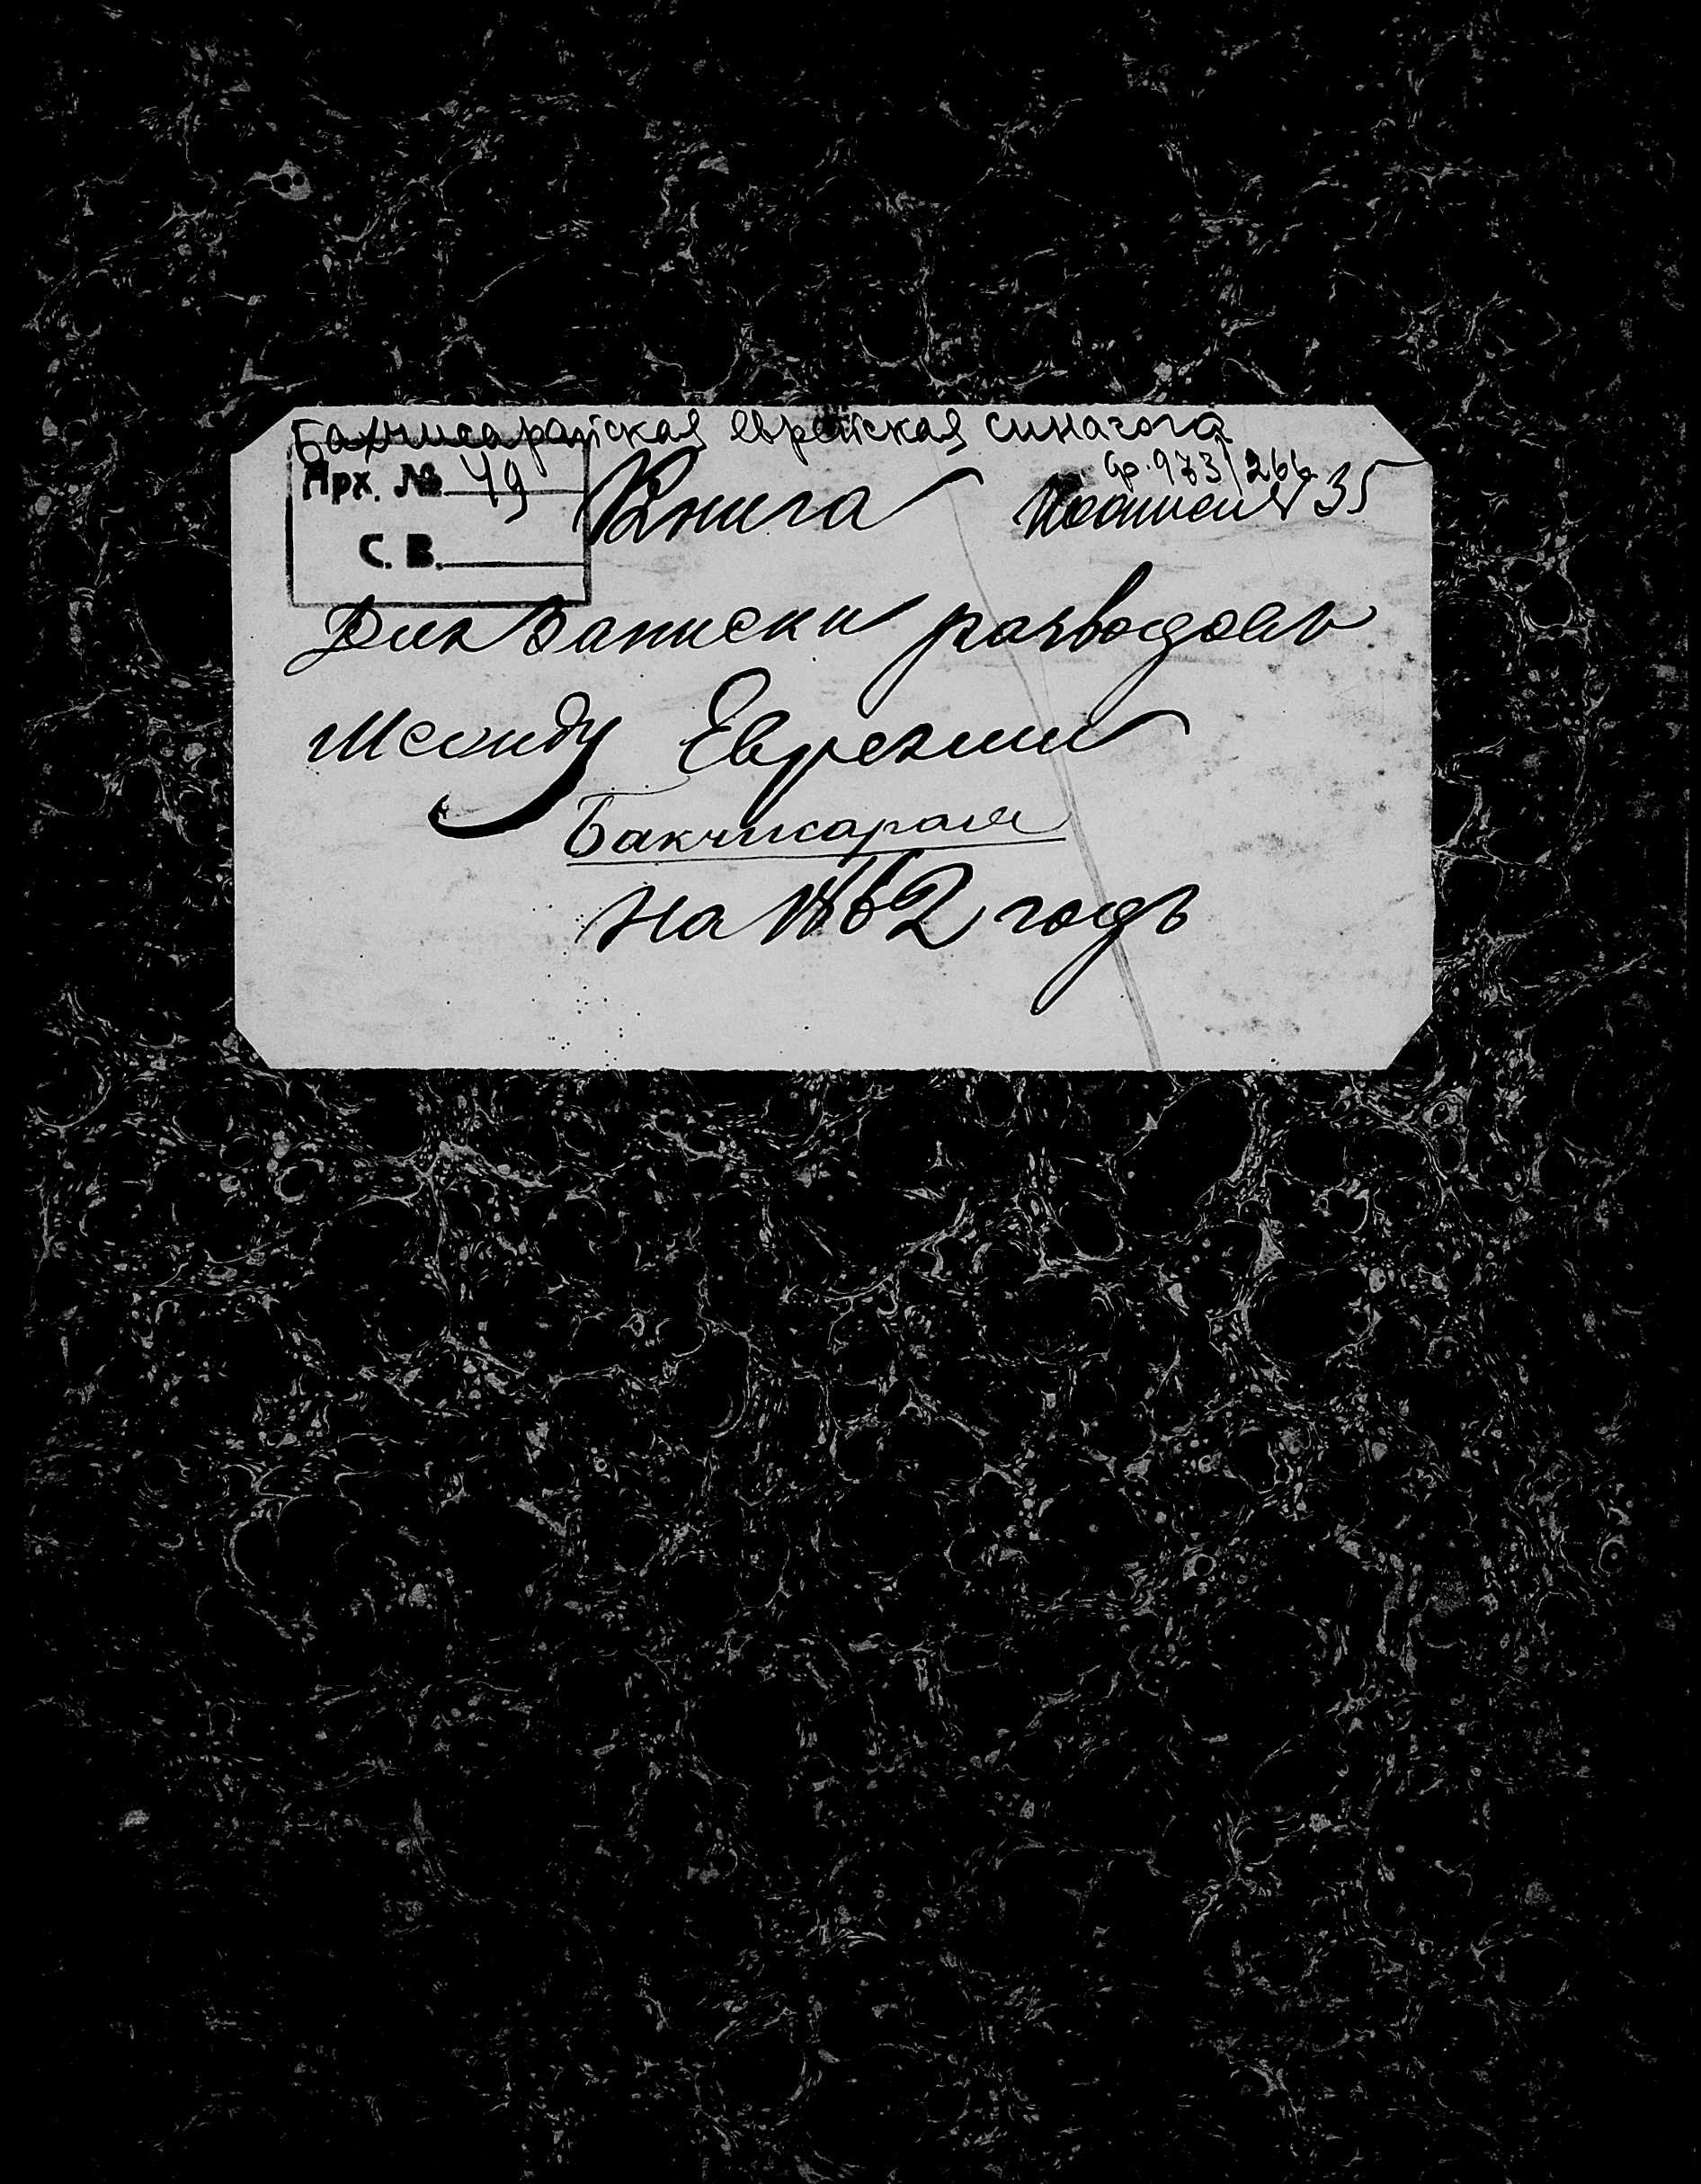 Бахчисарайская еврейская синагога
Арх. № 49
ф. 973/266
Книга
По описи № 35
С. В.
Для Записки разводовъ
Между Евреями
Бакчисарая
на 1862 годъ